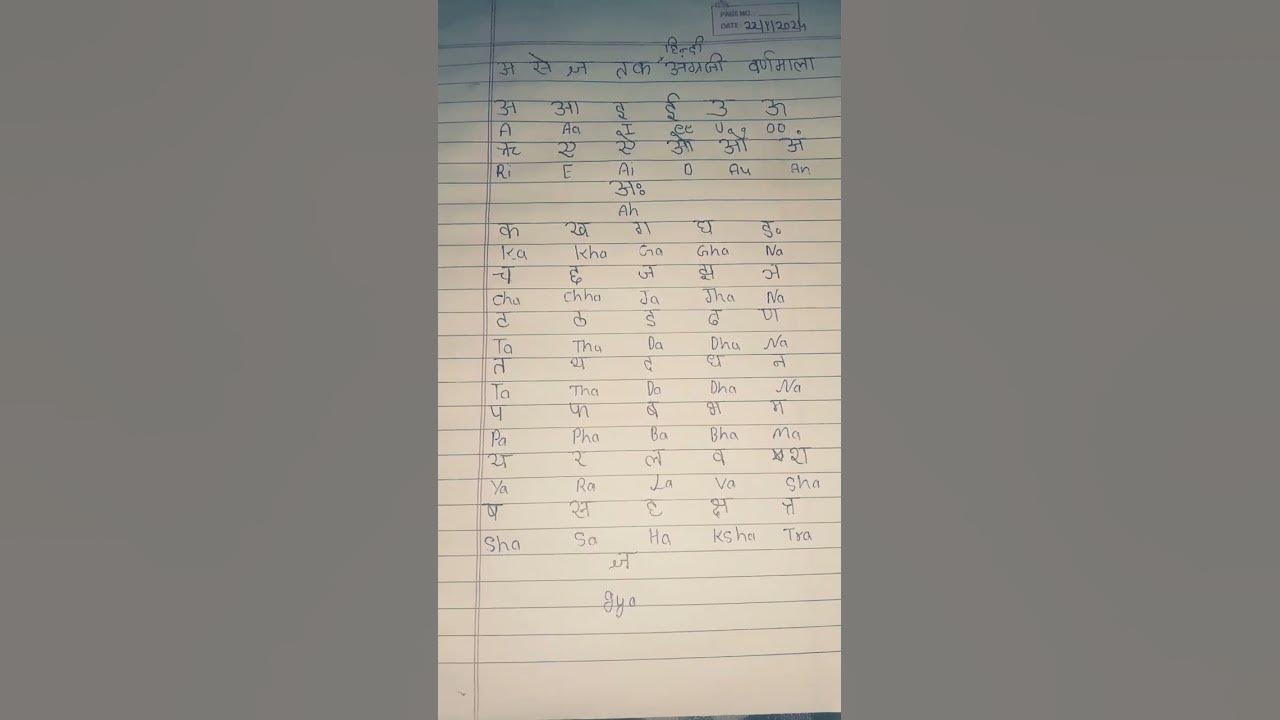 PAGE NO.
DATE 22/1/2024
हिन्दी
अ से ज्ञ तक अंग्रजी वर्णमाला
अ आ इ ई उ ऊ
A Aa I ee U OO
ऋ ए ऐ ओ औ अं
Ri E Ai O Au An
अः
Ah
क ख ग घ ङ
Ka Kha Ga Gha Na
च छ ज झ ञ
Cha Chha Ja Jha Na
ट ठ ड ढ ण
Ta Tha Da Dha Na
त थ द ध न
Ta Tha Da Dha Na
प फ ब भ म
Pa Pha Ba Bha Ma
य र ल व श
Ya Ra La Va Sha
ष स ह क्ष त्र
Sha Sa Ha Ksha Tra
ज्ञ
gya